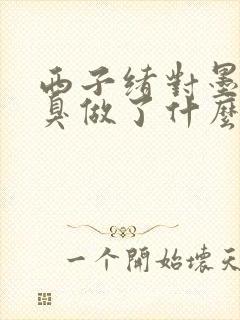 西子绪對墨
真做了什麼
一个開始壞天